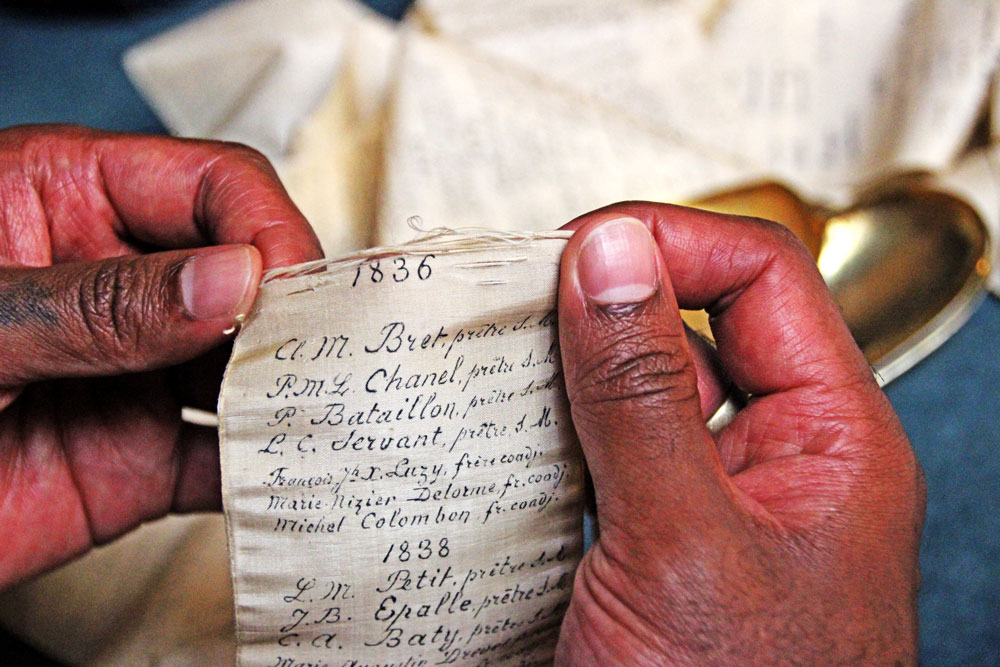 1836
Cl. M. Bret, prêtre S. M
P. M. L. Chanel, prêtre S. M
P. Bataillon, prêtre S. M
L. C. Servant, prêtre, S. M.
François, Jh X. Luzy, frère coadj.
Marie Nizier Delorme, fr. coadj.
Michel Colombon fr. coadj.
1838
L. M. Petit, prêtre S. M
J. B. Epalle, prêtre S. M
C. A. Baty, prêtre S. M
Marie Augustin